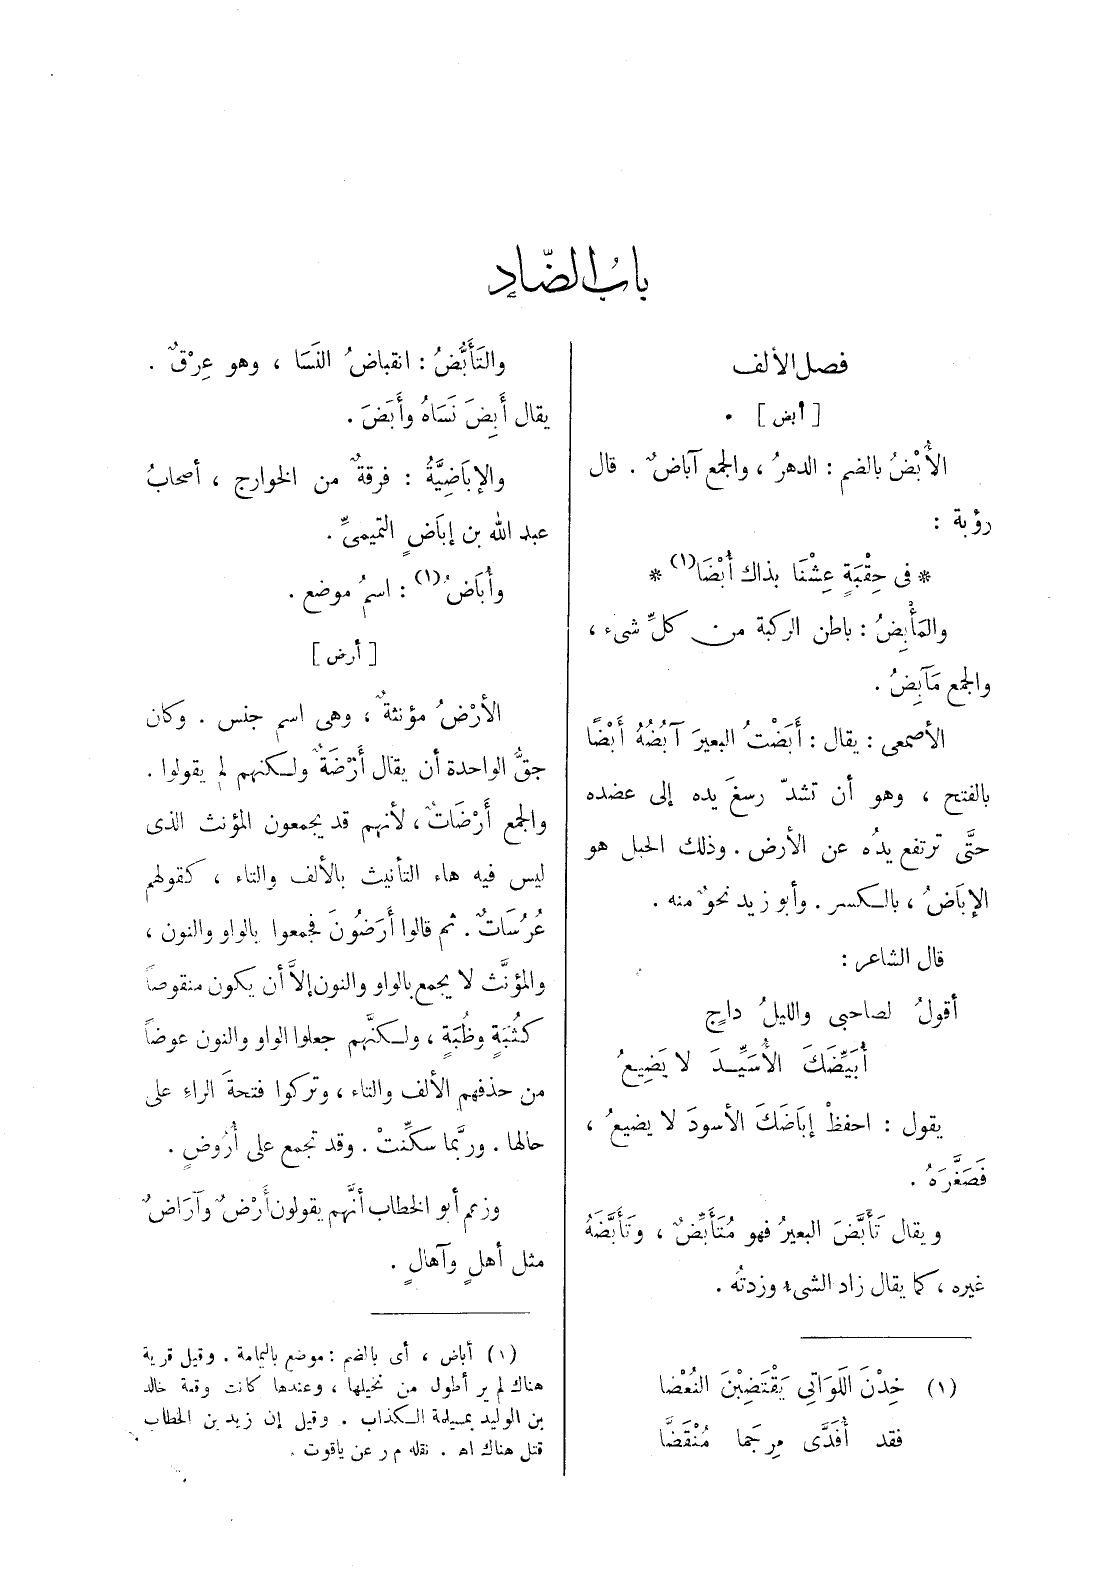 بابُ الضَّادِ
فصل الألف
[ أبض ] .
الأُبْضُ بالضم : الدهرُ ، والجمع آباضٌ . قال
رؤبة :
* فى حِقْبَةٍ عِشْنَا بذاك أُبْضَا (١) *
والمَأْبِضُ : باطن الركبة من كلِّ شىء ،
والجمع مَآبِضُ .
الأصمعى : يقال : أَبَضْتُ البعيرَ آبُضُهُ أَبْضًا
بالفتح ، وهو أن تشدّ رسغَ يده إلى عضده
حتَّى ترتفع يدُه عن الأرض . وذلك الحبل هو
الإبَاضُ ، بالكسر . وأبو زيد نحوٌ منه .
قال الشاعر :
أقولُ لصاحبى والليلُ داجٍ
أُبَيِّضَكَ الأُسَيِّدَ لا يَضِيعُ
يقول : احفظْ إبَاضَكَ الأسودَ لا يضيعُ ،
فَصَغَّرَهُ .
ويقال تَأَبَّضَ البعيرُ فهو مُتَأَبِّضٌ ، وتَأَبَّضَهُ
غيره ، كما يقال زاد الشىء وزدتُه .
(١) خِدْنَ اللَوَاتِي يَقْتَضِبْنَ النُعْضا
فقد أُفَدَّى مِرجَما مُنْقَضَّا
والتَأَبُّضُ : انقباضُ النَسَا ، وهو عِرْقٌ .
يقال أَبِضَ نَسَاهُ وأَبَضَ .
والإبَاضِيَّةُ : فرقةٌ من الخوارج ، أصحابُ
عبد الله بن إبَاضٍ التميمىِّ .
وأُبَاضُ (١) : اسمُ موضع .
[ أرض ]
الأرْضُ مؤنثةٌ ، وهى اسم جنس . وكان
حقُّ الواحدة أن يقال أَرْضَةٌ ولكنهم لم يقولوا .
والجمع أَرَضَاتٌ ، لأنهم قد يجمعون المؤنث الذى
ليس فيه هاء التأنيث بالألف والتاء ، كقولهم
عُرُسَاتٌ . ثم قالوا أَرَضُونَ فجمعوا بالواو والنون ،
والمؤنَّث لا يجمع بالواو والنون إلاَّ أن يكون منقوصاً
كثُبَةٍ وظُبَةٍ ، ولكنَّهم جعلوا الواو والنون عوضاً
من حذفهم الألف والتاء ، وتركوا فتحةَ الراءِ على
حالها . وربَّما سكِّنتْ . وقد تجمع على أُرُوضٍ .
وزعم أبو الخطاب أنَّهم يقولون أَرْضٌ وآرَاضٌ
مثل أهلٍ وآهالٍ .
(١) أباض ، أى بالضم : موضع باليمامة . وقيل قرية
هناك لم ير أطول من نخيلها ، وعندها كانت وقعة خالد
بن الوليد بمسيلمة الكذاب . وقيل إن زيد بن الخطاب
قتل هناك اه . نقله م ر عن ياقوت .